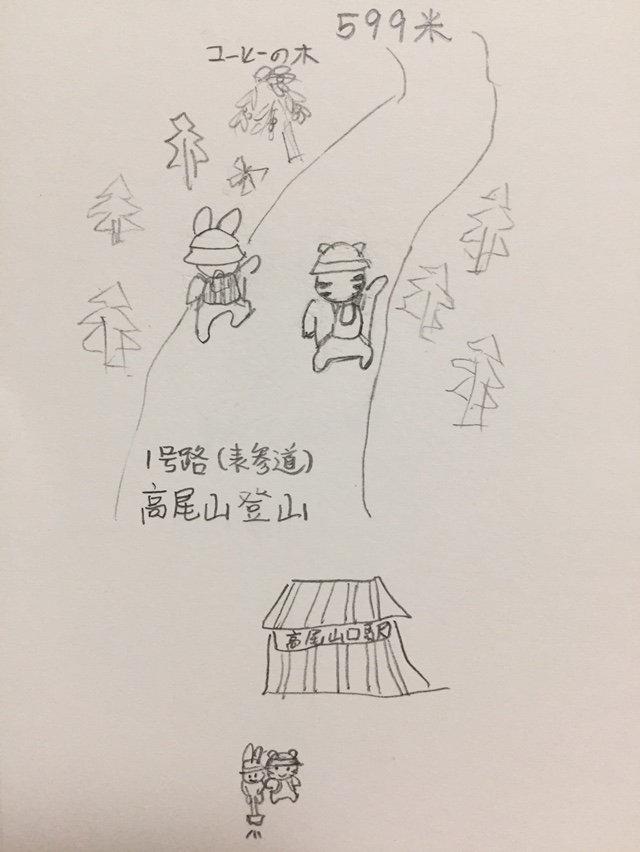 599米
コーヒーの木
1号路(表参道)
高尾山登山
高尾山口駅